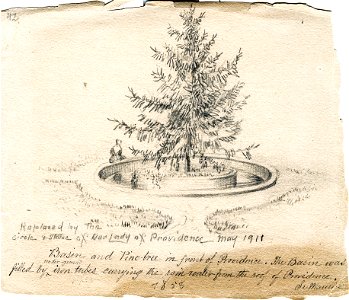 Replaced by the
circle & statue of Our Lady of Providence May 1911
Basin, and Pine tree in front of Providence. The Basin was
filled by under ground iron tubes carrying the rain water from the roof of Providence.
1858